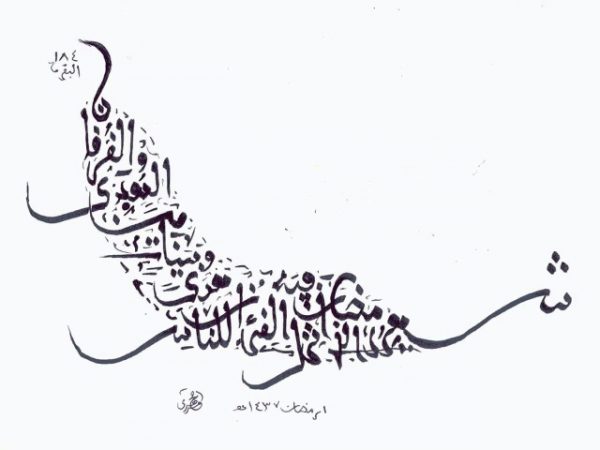 شهر رمضان الذي أنزل فيه القرآن هدى للناس وبينات من الهدى والفرقان
١٨٤
البقرة
١ رمضان ١٤٣٧هـ